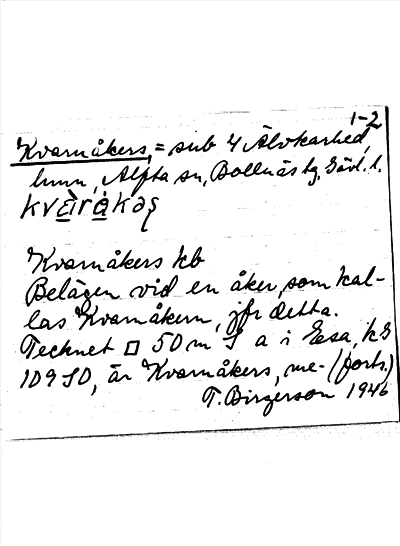 1-2
Kvarnåkers, = sub 4 Älvkarhed,
hmn, Alfta sn, Bollnäs tg, Gävl. l.
kvàråkəʂ
Kvarnåkers kb
Belägen vid en åker, som kal-
las Kvarnåkern, jfr detta.
Tecknet □ 50 m S a i Esa, kS
109 SO, är Kvarnåkers, me- (forts.)
T. Birgerson 1946